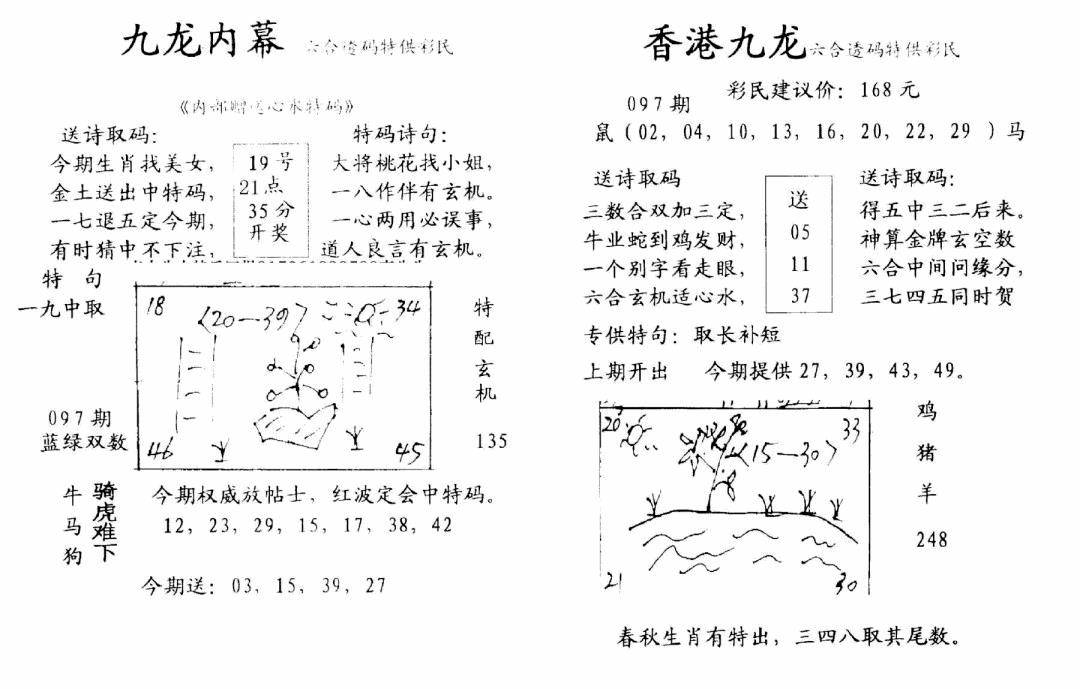 九龙内幕 六合透码特供彩民
《内部赠送心水特码》
送诗取码：
今期生肖找美女，
金土送出中特码，
一七退五定今期，
有时猜中不下注，
19号
21点
35分
开奖
特码诗句：
大将桃花找小姐，
一八作伴有玄机。
一心两用必误事，
道人良言有玄机。
特句
一九中取
097期
蓝绿双数
18
〈20—39〉
34
46
45
特配玄机
135
牛马狗
骑虎难下
今期权威放帖士，红波定会中特码。
12，23，29，15，17，38，42
今期送：03，15，39，27
香港九龙 六合透码特供彩民
097期
彩民建议价：168元
鼠（02，04，10，13，16，20，22，29 ）马
送诗取码
三数合双加三定，
牛业蛇到鸡发财，
一个别字看走眼，
六合玄机适心水，
送
05
11
37
送诗取码：
得五中三二后来。
神算金牌玄空数
六合中间问缘分，
三七四五同时贺
专供特句：取长补短
上期开出 今期提供27，39，43，49。
20
33
〈15—30〉
21
30
鸡
猪
羊
248
春秋生肖有特出，三四八取其尾数。